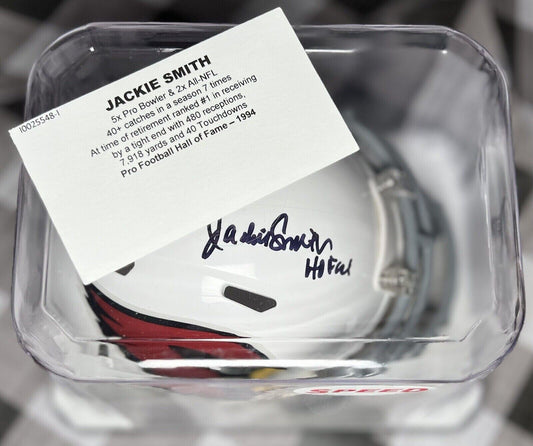 I0025548-I
JACKIE SMITH
5x Pro Bowler & 2x All-NFL
40+ catches in a season 7 times
At time of retirement ranked #1 in receiving
by a tight end with 480 receptions,
7,918 yards and 40 Touchdowns
Pro Football Hall of Fame ~ 1994
Jackie Smith
HOFer
SPEED